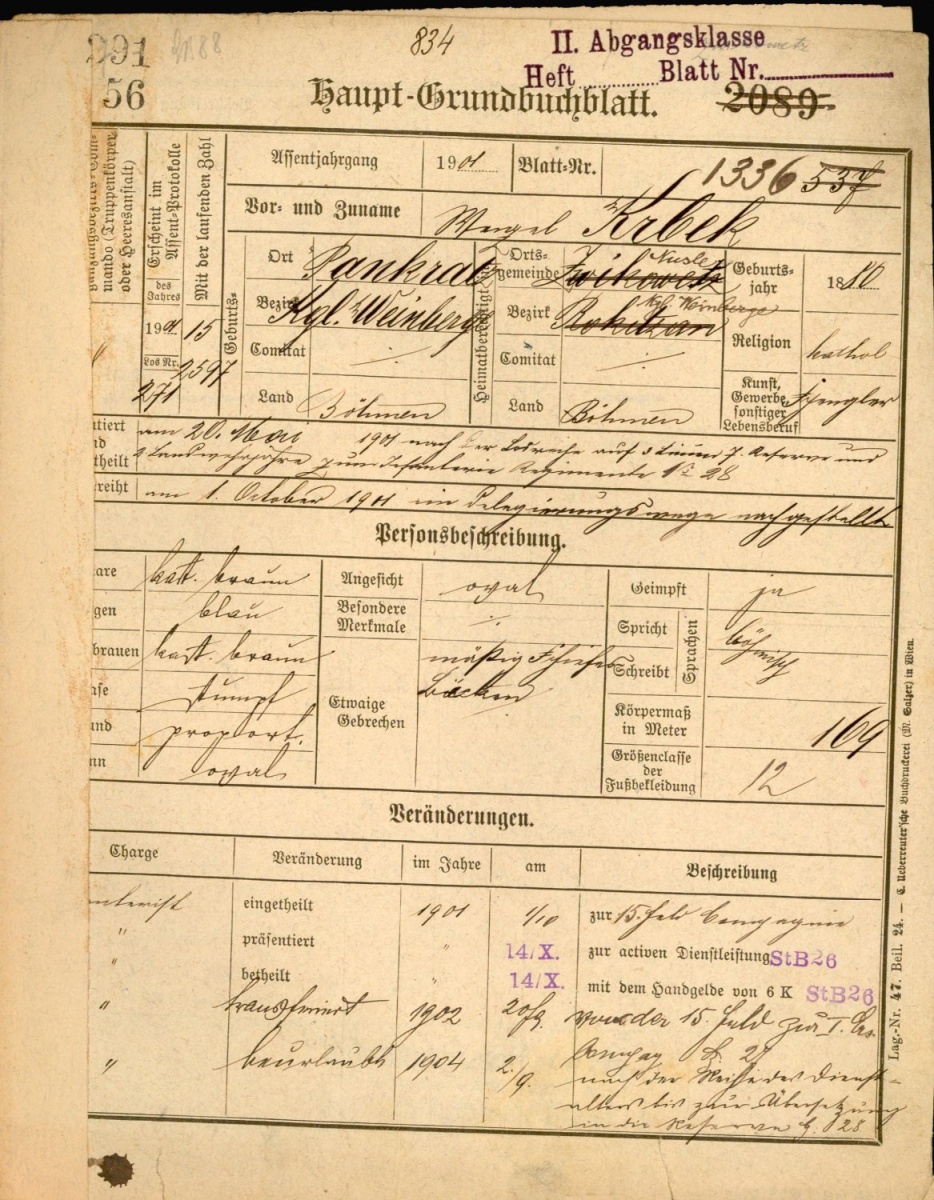 291
56
834
II. Abgangsklasse
Heft ............ Blatt Nr. ............
Haupt-Grundbuchblatt.
2089
mando (Truppenkörper
oder Heeresanstalt)
Erscheint im
Assent-Protokolle
des
Jahres
Mit der laufenden Zahl
1901
15
Los Nr.
271
2597
Assentjahrgang
1901
Blatt-Nr.
1336 537
Vor- und Zuname
Krbek
Geburts-
Ort
Pankratz
Bezirk
Kgl. Weinberge
Comitat
Land
Böhmen
Heimatberechtigt in
Orts-
gemeinde
Nusle
Zwikowetz
Bezirk
Kgl. Weinberge
Rokitzan
Comitat
Land
Böhmen
Geburts-
jahr
1880
Religion
kathol
Kunst,
Gewerbe,
sonstiger
Lebensberuf
Spengler
ntiert
nd
theilt
am 20. Mai 1901 nach der Losreihe auf 3 Linien 7 Reserve und
2 Landwehrjahre zum Infanterie Regimente No 28
reiht
am 1. October 1901 im Delegierungswege nachgestellt
Personsbeschreibung.
are
kast. braun
gen
blau
brauen
kast. braun
ase
stumpf
und
proport.
nn
oval
Angesicht
oval
Besondere
Merkmale
Etwaige
Gebrechen
mäßig
Geimpft
ja
Spricht
Schreibt
Sprachen
böhmisch
Körpermaß
in Meter
169
Größenclasse
der
Fußbekleidung
12
Veränderungen.
Charge
Veränderung
im Jahre
am
Beschreibung
nterist
eingetheilt
1901
1/10
zur 15. Feld Compagnie
"
präsentiert
"
14/X.
zur activen Dienstleistung StB26
"
betheilt
"
14/X.
mit dem Handgelde von 6 K StB26
"
transferiert
1902
20/9
von der 15. Feld zur I. Ers.
Compag
"
beurlaubt
1904
2./9.
nach der Reihe des Dienst-
alters bis zur Übersetzung
in die Reserve § 28
Lag.-Nr. 47. Beil. 24. — C. Ueberreuter'sche Buchdruckerei (M. Salzer) in Wien.